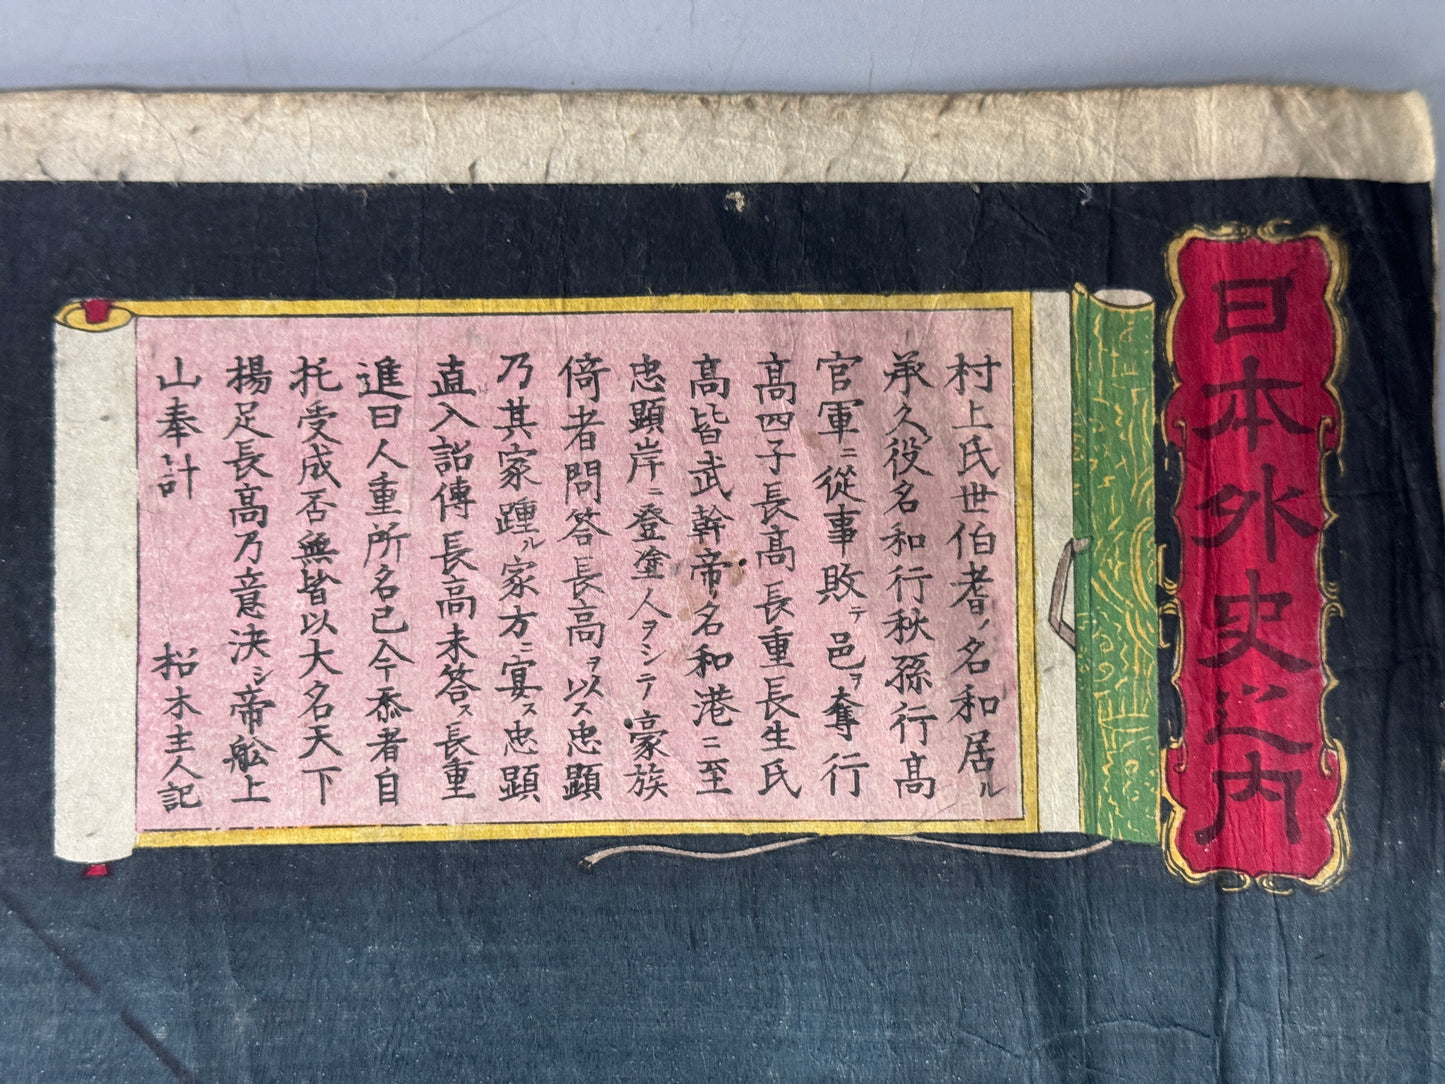 日本外史之内
村上氏世伯耆ノ名和居ル
承久役名和行秋孫行髙
官軍ニ從事敗テ邑ヲ奪行
髙四子長髙長重長生氏
髙皆武幹帝ノ名和港ニ至
忠顕岸ニ登塗人ヲシテ豪族
倚者問答長髙ヲ以ス忠顕
乃其家踵ル家方ニ宴ス忠顕
直入詔傳長高未答ス長重
進曰人重所名已今忝者自
托受成否無皆以大名天下
揚足長髙乃意决シ帝舩上
山奉計
松木主人記